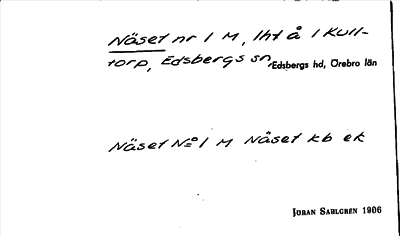 Näset nr 1 M, lht å i Kull-
torp, Edsbergs sn, Edsbergs hd, Örebro län
Näset No 1 M Näset kb ek
JÖRAN SAHLGREN 1906